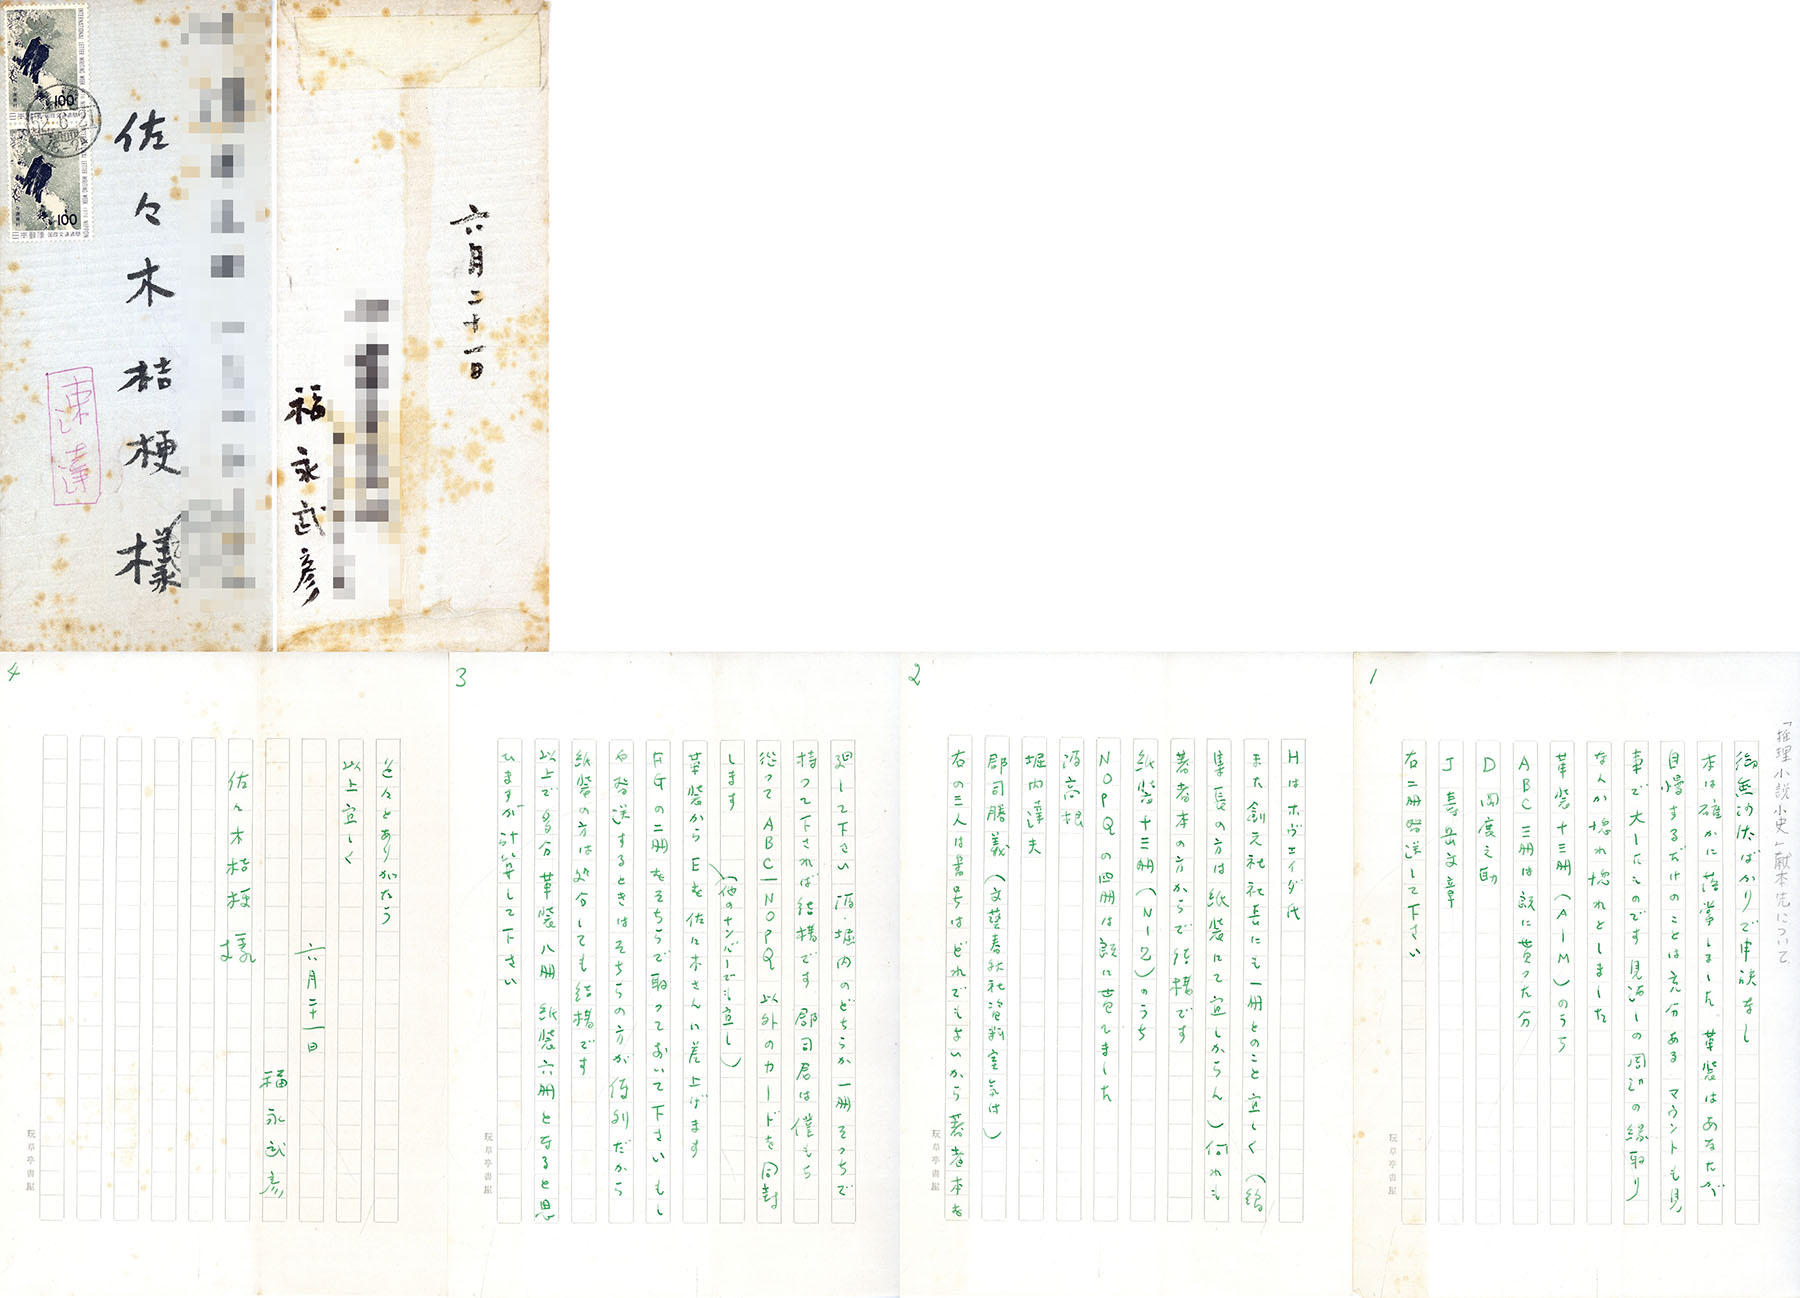 佐々木桔梗様
速達
100
100
六月二十一日
福永武彦
「推理小説小史」献本先について
1
御無沙汰ばかりで申訳なし
本は確かに落掌しました 革装はあなたが
自慢するだけのことは充分ある マウントも見
事で大したものです 見返しの周辺の縁取り
なんか惚れ惚れとしました
革装十三冊(A―M)のうち
ABC三冊は既に貰った分
D 岡度之助
J 寿岳文章
右二冊発送して下さい
玩草亭書屋
2
Hはホヴェイダ氏
また創元社社長にも一冊とのこと宜しく(編
集長の方は紙装にて宜しからん)何れも
著者本の方からで結構です
紙装十三冊(N―Z)のうち
NOPQの四冊は既に貰てました
源高根
堀内達夫
郡司勝義(文藝春秋社資料室気付)
右の三人は番号はどれでもよいから著者本を
玩草亭書屋
3
廻して下さい 源・堀内のどちらか一冊そっちで
持って下されば結構です 郡司君は僕もち
従って ABC―NOPQ 以外のカードを同封
します
(他のナンバーでも宜し)
革装からEを佐々木さんに差上げます
FGの二冊をそちらで取っておいて下さい もし
や発送するときはそちらの方が便利だから
紙装の方は処分しても結構です
以上で多分革装八冊 紙装六冊となると思
ひますが計算して下さい
玩草亭書屋
4
色々とありがたう
以上宜しく
六月二十一日
福永武彦
佐々木桔梗様
玩草亭書屋